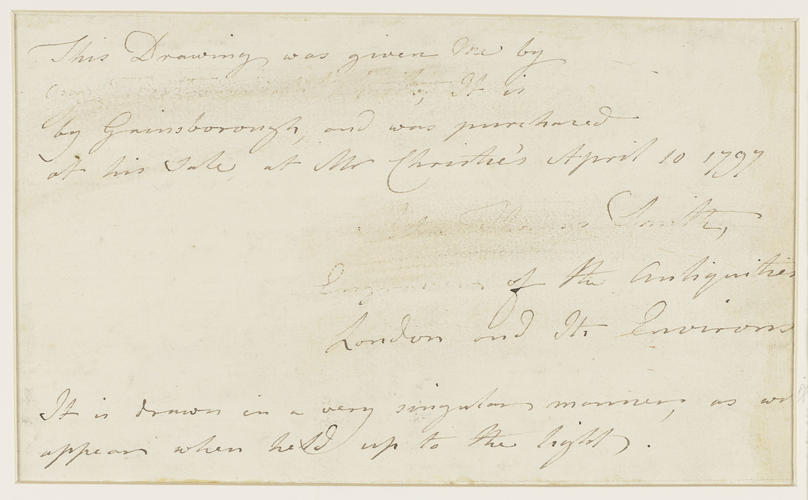 This Drawing was given Me by
It is
by Gainsborough, and was purchased
at his Sale, at Mr Christie's April 10 1797
Thomas Smith,
Engraver of the Antiquities
London and Its Environs
It is drawn in a very singular manner, as
appear when held up to the light.